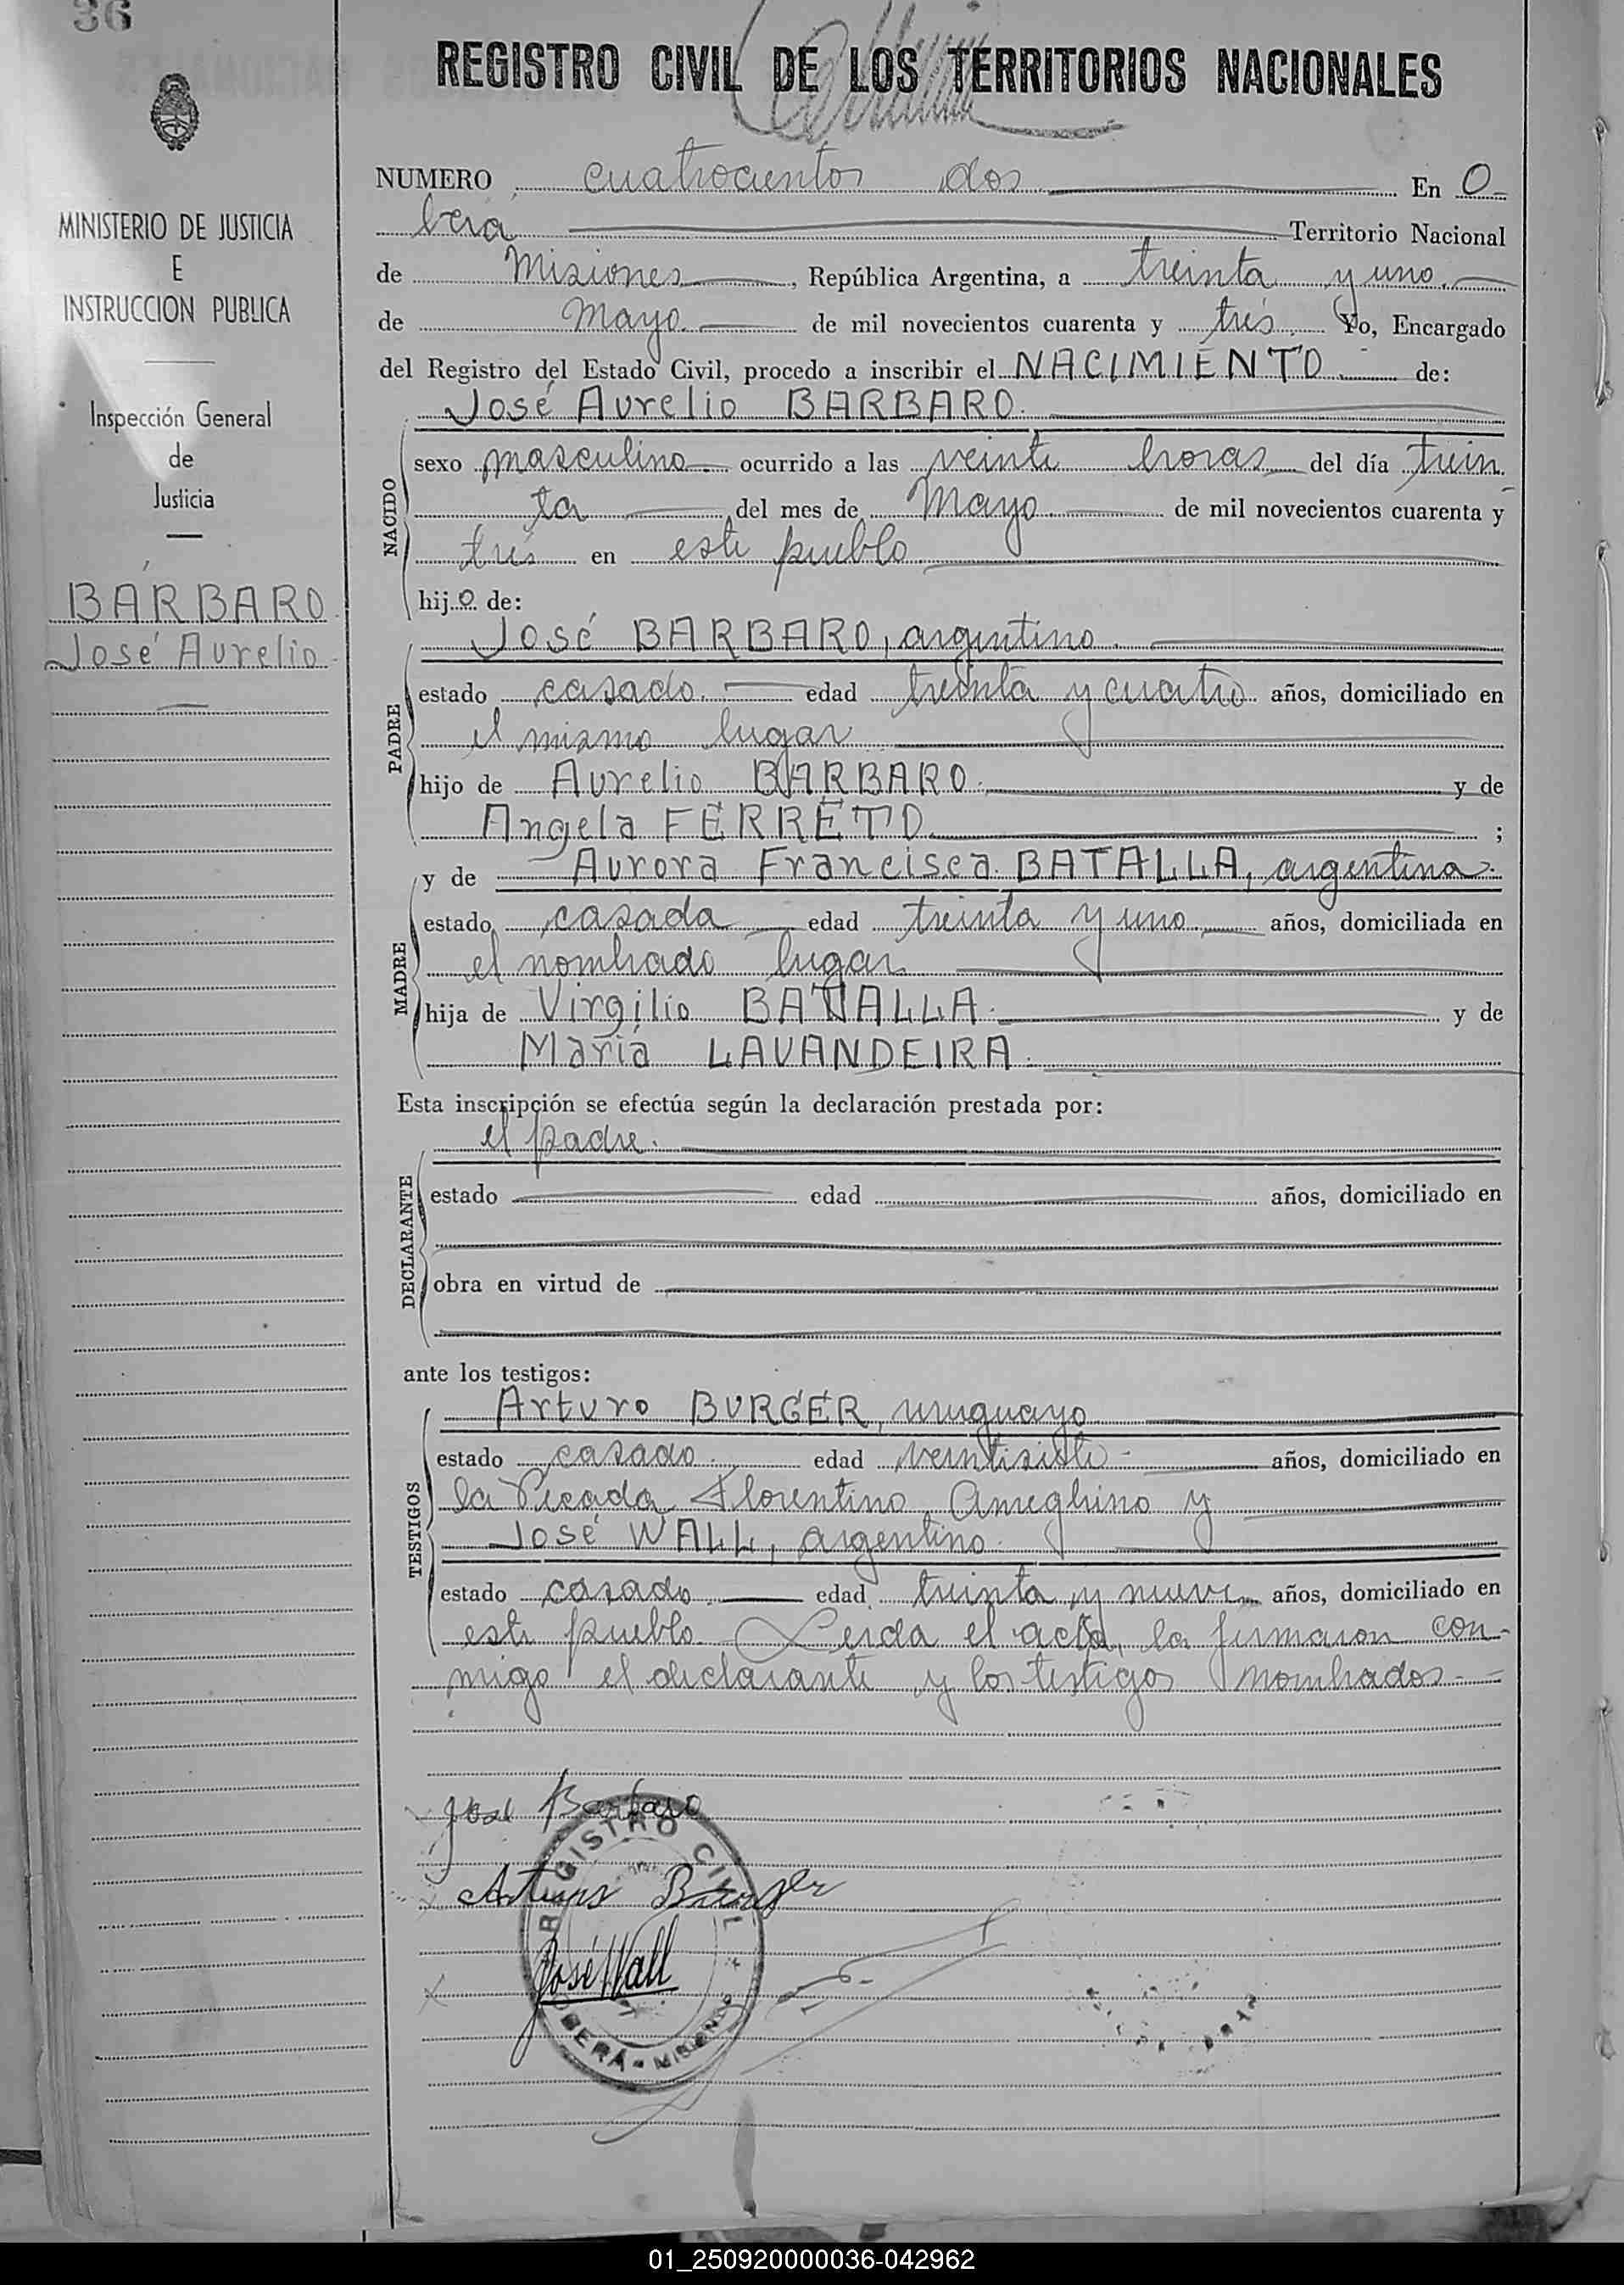 36
REGISTRO CIVIL DE LOS TERRITORIOS NACIONALES
MINISTERIO DE JUSTICIA
E
INSTRUCCION PUBLICA
Inspección General
de
Justicia
BÁRBARO
José Aurelio
NUMERO cuatrocientos dos En O-
berá Territorio Nacional
de Misiones, República Argentina, a treinta y uno.
de Mayo. de mil novecientos cuarenta y trés. Yo, Encargado
del Registro del Estado Civil, procedo a inscribir el NACIMIENTO de:
José Aurelio BARBARO.
NACIDO
sexo masculino ocurrido a las veinte horas del día trein-
ta del mes de Mayo. de mil novecientos cuarenta y
trés en este pueblo.
hijo de:
PADRE
José BARBARO, argentino.
estado casado. edad treinta y cuatro años, domiciliado en
el mismo lugar
hijo de Aurelio BARBARO. y de
Angela FERRETO. ;
MADRE
y de Aurora Francisca BATALLA, argentina.
estado casada edad treinta y uno. años, domiciliada en
el nombrado lugar
hija de Virgilio BATALLA. y de
María LAVANDEIRA.
Esta inscripción se efectúa según la declaración prestada por:
el padre.
DECLARANTE
estado edad años, domiciliado en
obra en virtud de
ante los testigos:
TESTIGOS
Arturo BURGER, uruguayo
estado casado. edad veintisiete años, domiciliado en
la Picada Florentino Ameghino y
José WALL, argentino.
estado casado. edad treinta y nueve años, domiciliado en
este pueblo. Leida el acta, la firmaron con-
migo el declarante y los testigos nombrados.
José Barbaro
REGISTRO CIVIL
Arturo Burger
José Wall
OBERÁ - MISIONES
01_250920000036-042962